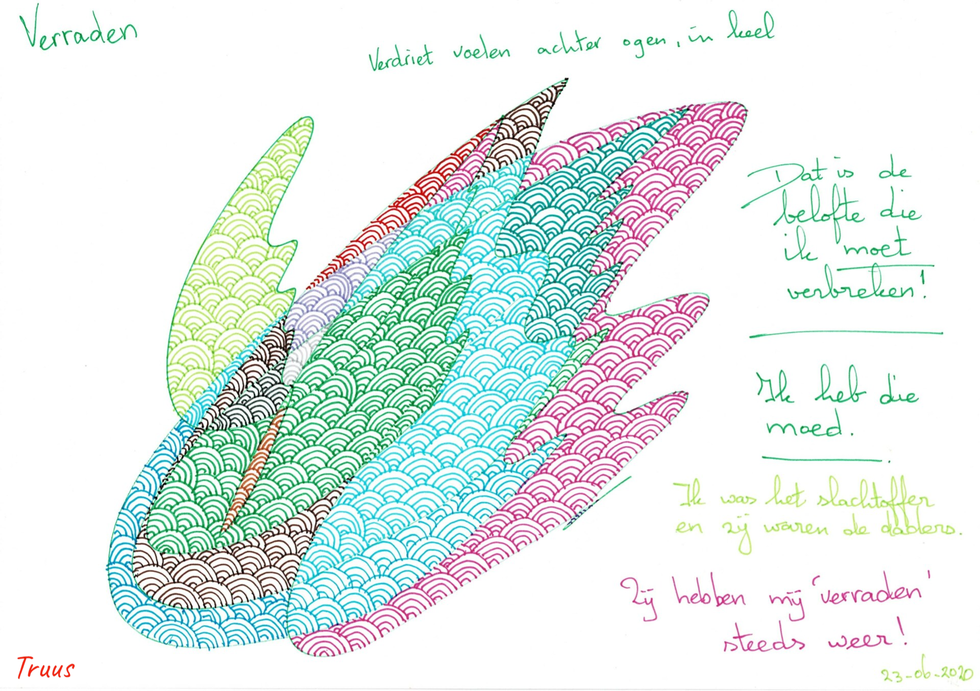 Verraden
Verdriet voelen achter ogen, in keel
Dat is de
belofte die
ik moet
verbreken!
Ik heb die
moed.
Ik was het slachtoffer
en zij waren de daders.
Zij hebben mij 'verraden'
steeds weer!
Truus
23-06-2020